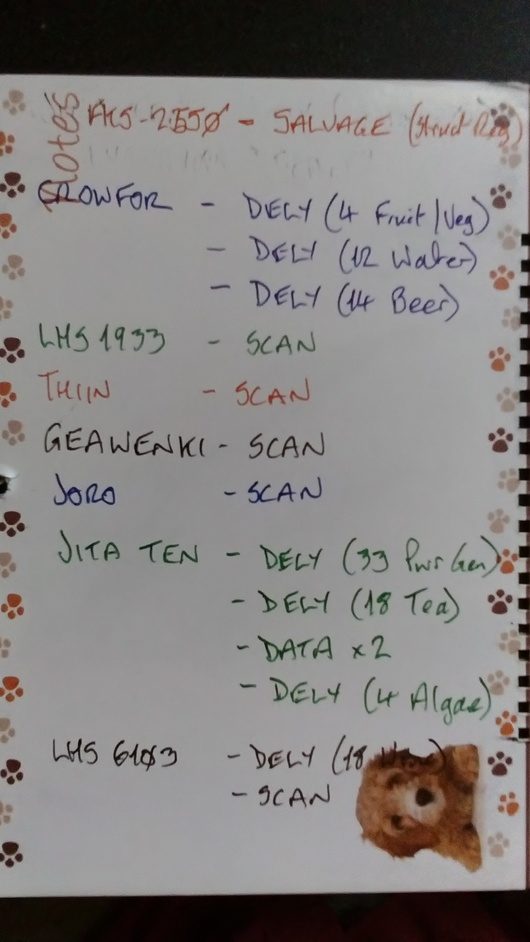 Notes
- SALVAGE (Struct Reg)
GROWFOR - DELY (4 Fruit/Veg)
- DELY (12 Water)
- DELY (14 Beer)
LHS 1933 - SCAN
THIIN - SCAN
GEAWENKI - SCAN
JORO - SCAN
JITA TEN - DELY (33 Pwr Gen)
- DELY (18 Tea)
- DATA x2
- DELY (4 Algae)
LHS 6103 - DELY (18
- SCAN